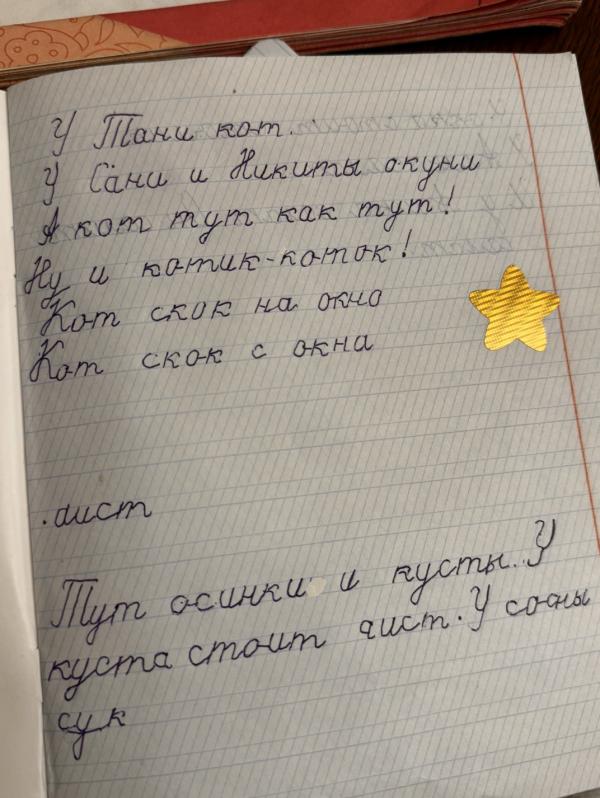 У Тани кот.
У Сани и Никиты окуни
А кот тут как тут!
Ну и котик-коток!
Кот скок на окно
Кот скок с окна
.аист
Тут осинки и кусты. У
куста стоит аист. У сосны
сук